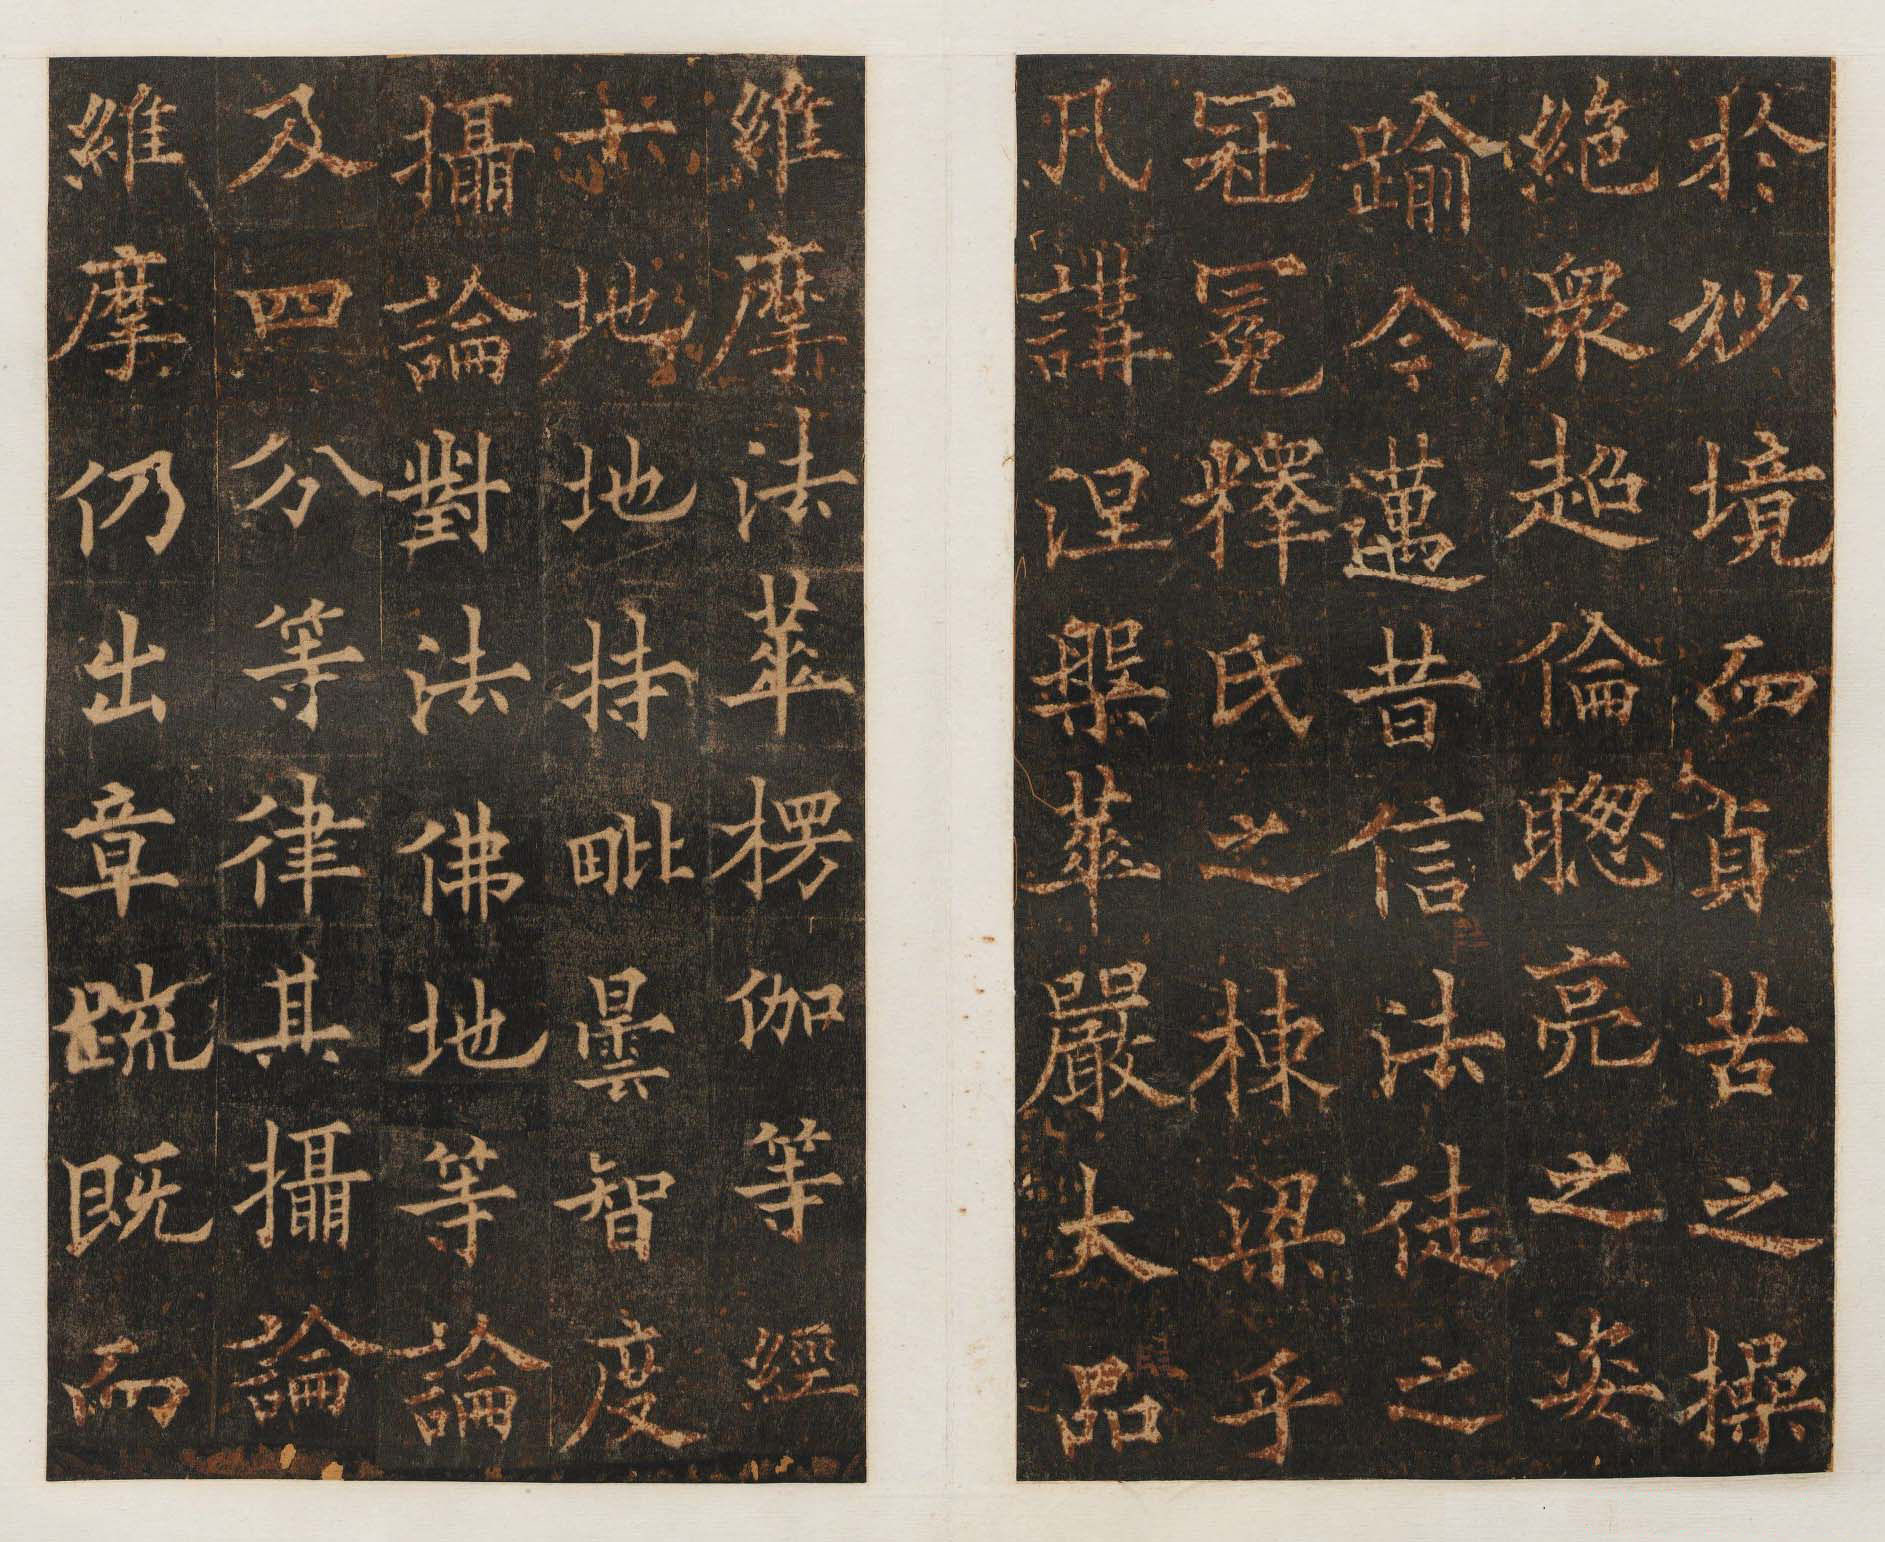 於玅境而貞苦之操
絶衆超倫聰亮之姿
踰今邁昔信法徒之
冠冕釋氏之棟梁乎
凡講涅槃華嚴大品
維摩法華楞伽等經
十地地持毗曇智度
攝論對法佛地等論
及四分等律其攝論
維摩仍出章疏既而